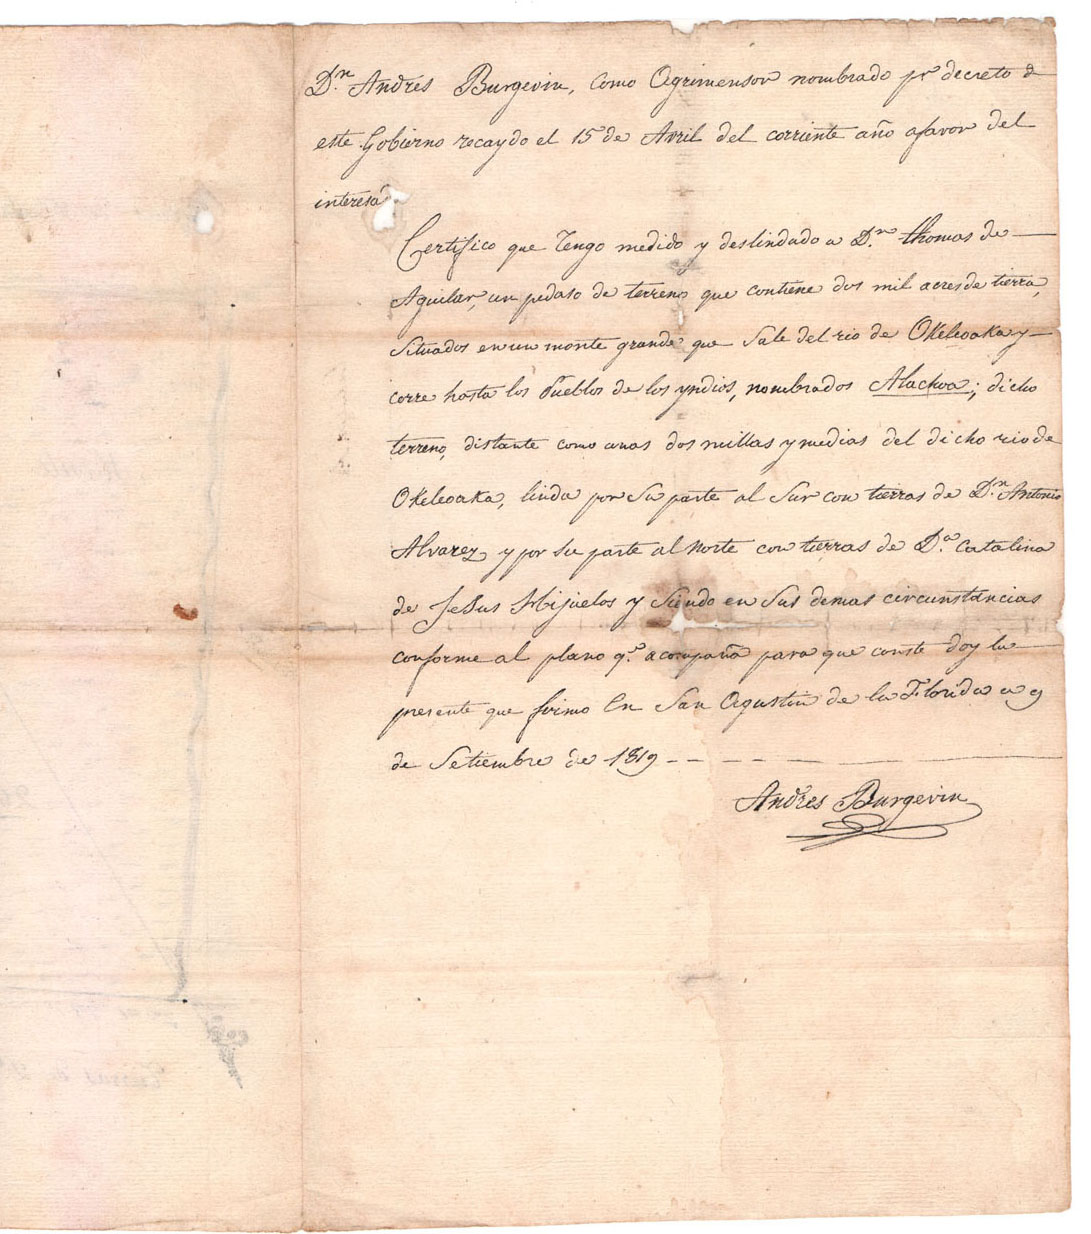 Dn. Andres Burgevin, como Agrimensor nombrado pr decreto de
este Gobierno recaydo el 15 de Avril del corriente año afavor del
interesa
Certifico que Tengo medido y deslindado a Dn. thomas de
Aguilar, un pedaso de terreno que contiene dos mil acres de tierra,
Situados en un monte grande que Sale del rio de Okeleoaka y
corre hasta los Pueblos de los yndios, nombrados Alachoa; dicho
terreno, distante como unas dos millas y medias del dicho rio de
Okeleoaka, linda por Su parte al Sur con tierras de Dn. Antonio
Alvarez y por Su parte al norte con tierras de Da. Catalina
de Jesus Hijuelos y Siendo en Sus demas circunstancias
conforme al plano qe. acompaña para que conste doy la
presente que firmo En San Agustin de la Florida a 9
de Setiembre de 1819
Andres Burgevin